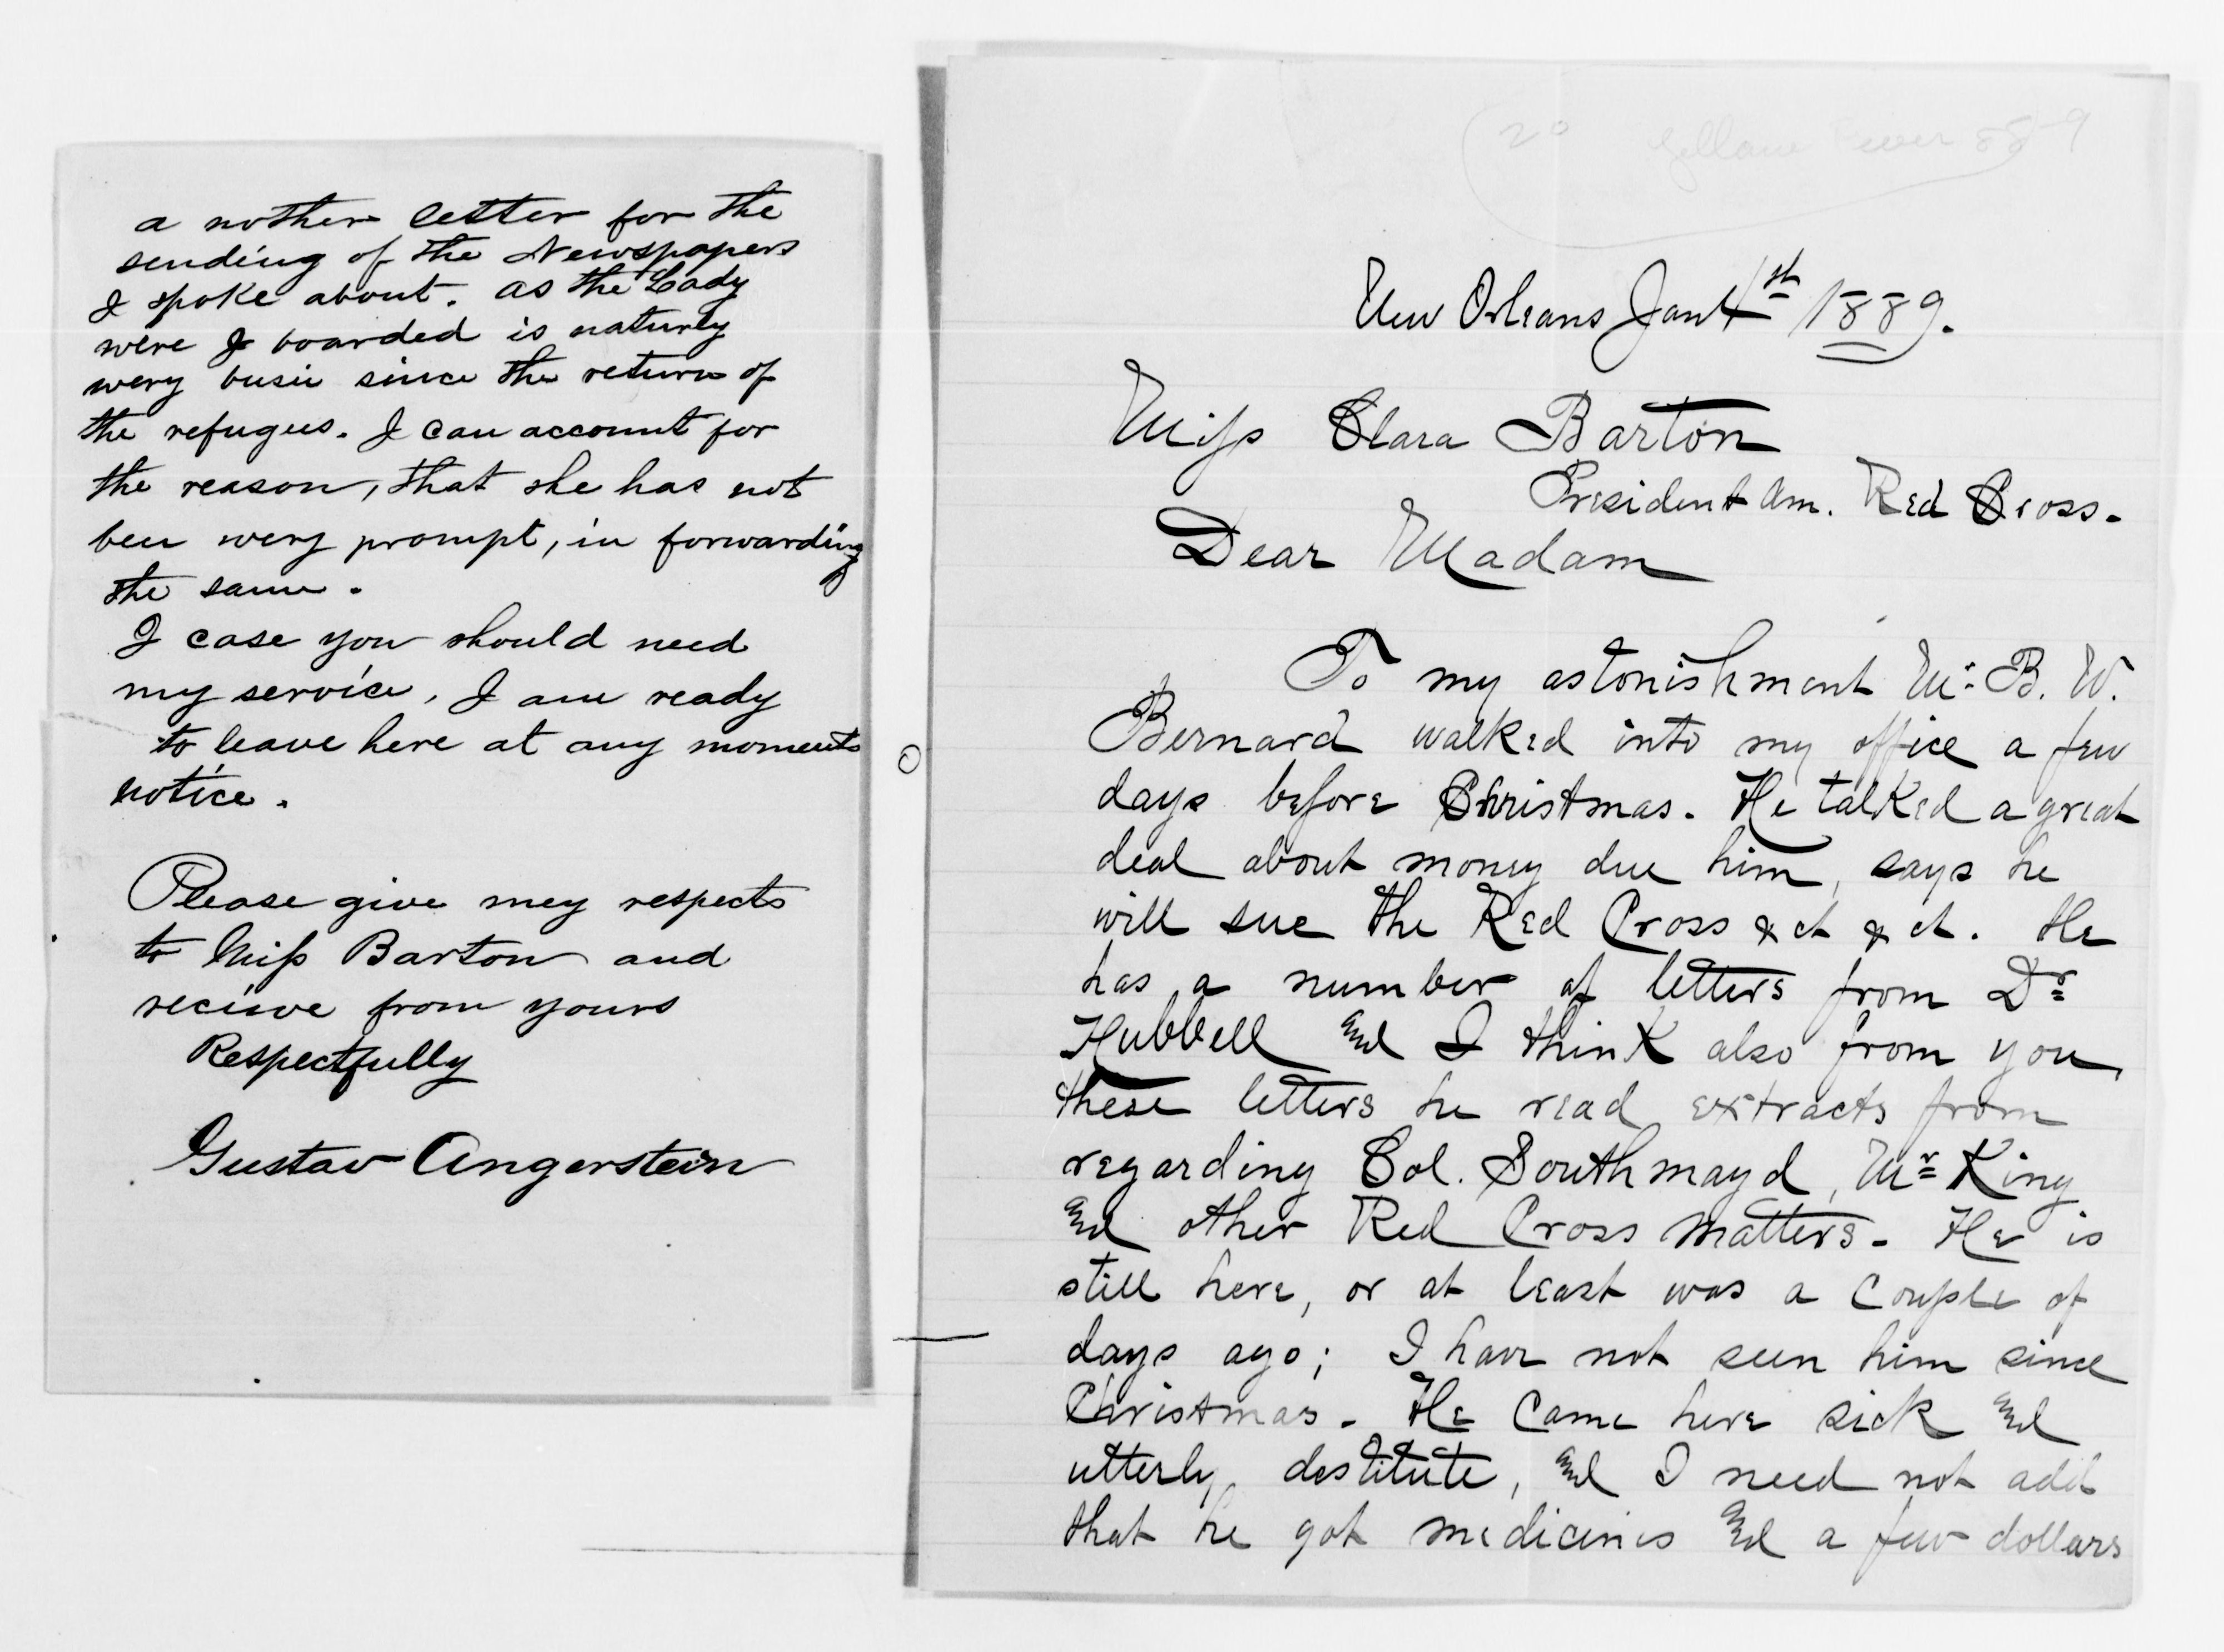 a nother letter for the
sending of the Newspapers
I spoke about. as the Lady
were I boarded is naturly
wery busie since the return of
the refugees. I can account for
the reason, that she has not
ben wery prompt, in forwarding
the same.
I case you should need
my service, I am ready
to leave here at any moments
notice.
Please give mey respects
to Miss Barton and
recieve from yours
Respectfully
Gustav Angerstein
20 Yellow Fever 88-9
New Orleans Jan 1st 1889.
Miss Clara Barton
President Am. Red Cross.
Dear Madam
To my astonishment Mr. B. W.
Bernard walked into my office a few
days before Christmas. He talked a great
deal about money due him, says he
will sue the Red Cross & ct & ct. He
has a number of letters from Dr
Hubbell and I think also from you,
these letters he read extracts from
regarding Col. Southmayd, Mr King
and other Red Cross matters. He is
still here, or at least was a couple of
days ago; I have not seen him since
Christmas. He came here sick and
utterly destitute, and I need not add
that he got medicines and a few dollars